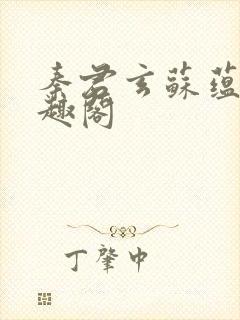 秦君玄蘇蘊
趣閣
丁肇中